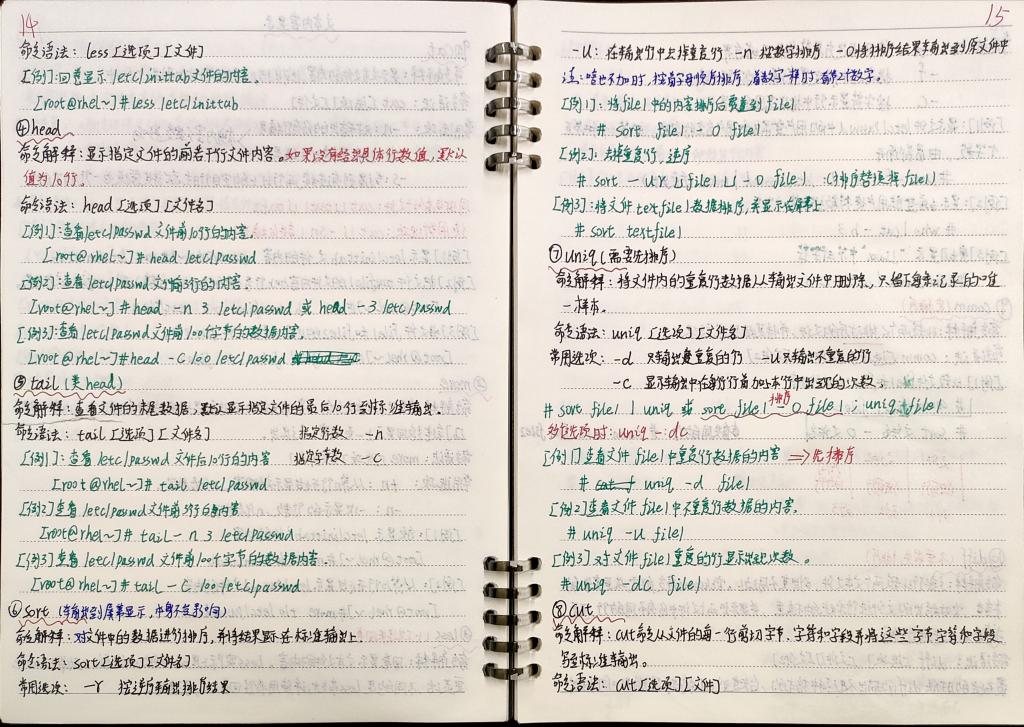 14
命令语法：less [选项] [文件]
[例]：回卷显示 /etc/inittab文件的内容。
[root@rhel~]# less /etc/inittab
④ head
命令解释：显示指定文件的前若干行文件内容。如果没有给出具体行数值，默认
值为10行。
命令语法：head [选项] [文件名]
[例1]：查看/etc/passwd 文件前10行的内容。
[root@rhel~]# head /etc/passwd
[例2]：查看/etc/passwd 文件前3行的内容。
[root@rhel~]# head -n 3 /etc/passwd 或 head -3 /etc/passwd
[例3]：查看/etc/passwd文件前100个字节的数据内容。
[root@rhel~]# head -c 100 /etc/passwd
⑤ tail (类head)
命令解释：查看文件的末尾数据，默认显示指定文件的最后10行到标准输出。
命令语法：tail [选项] [文件名] 指定行数 -n
[例1]：查看 /etc/passwd 文件后10行的内容 指定字节数 -c
[root@rhel~]# tail /etc/passwd
[例2]查看 /etc/passwd 文件前3行的内容。
[root@rhel~]# tail -n 3 /etc/passwd
[例3]查看 /etc/passwd 文件前100个字节的数据内容
[root@rhel~]# tail -c 100 /etc/passwd
⑥ sort (输出到屏幕显示，内容不变)
命令解释：对文件中的数据进行排序，并将结果显示在标准输出上
命令语法：sort [选项] [文件名]
常用选项：-r 按逆序输出排序结果
15
-u：在输出行中去掉重复行 -n 按数字排序 -o 将排序结果输出到原文件中
注：啥也不加时，按首字母顺序排序，首数字一样时，看第2个数字。
[例1]：将file1中的内容排序后覆盖到file1
# sort file1 -o file1
[例2]：去掉重复行，逆序
# sort -ur file1 -o file1 (排序替换掉file1)
[例3]：将文件textfile1数据排序，并显示在屏幕上
# sort textfile1
⑦ uniq (需要先排序)
命令解释：将文件内的重复行数据从输出文件中删除，只留下每条记录的唯
一样本。
命令语法：uniq [选项] [文件名]
常用选项：-d 只输出重复的行 -u 只输出不重复的行
-c 显示输出中在每行行首加上本行中出现的次数
# sort file1 | uniq 或 sort file1 -o file1 ; uniq file1
排序
多选项时：uniq -dc
[例1]查看文件 file1 中重复行数据的内容 ⇒先排序
# uniq -d file1
[例2]查看文件 file1 中不重复行数据的内容。
# uniq -u file1
[例3]对文件file1重复的行显示出现次数。
# uniq -dc file1
⑧ cut
命令解释：cut命令从文件的每一行剪切字节、字符和字段并将这些字节字符和字段
写至标准输出。
命令语法：cut [选项] [文件]